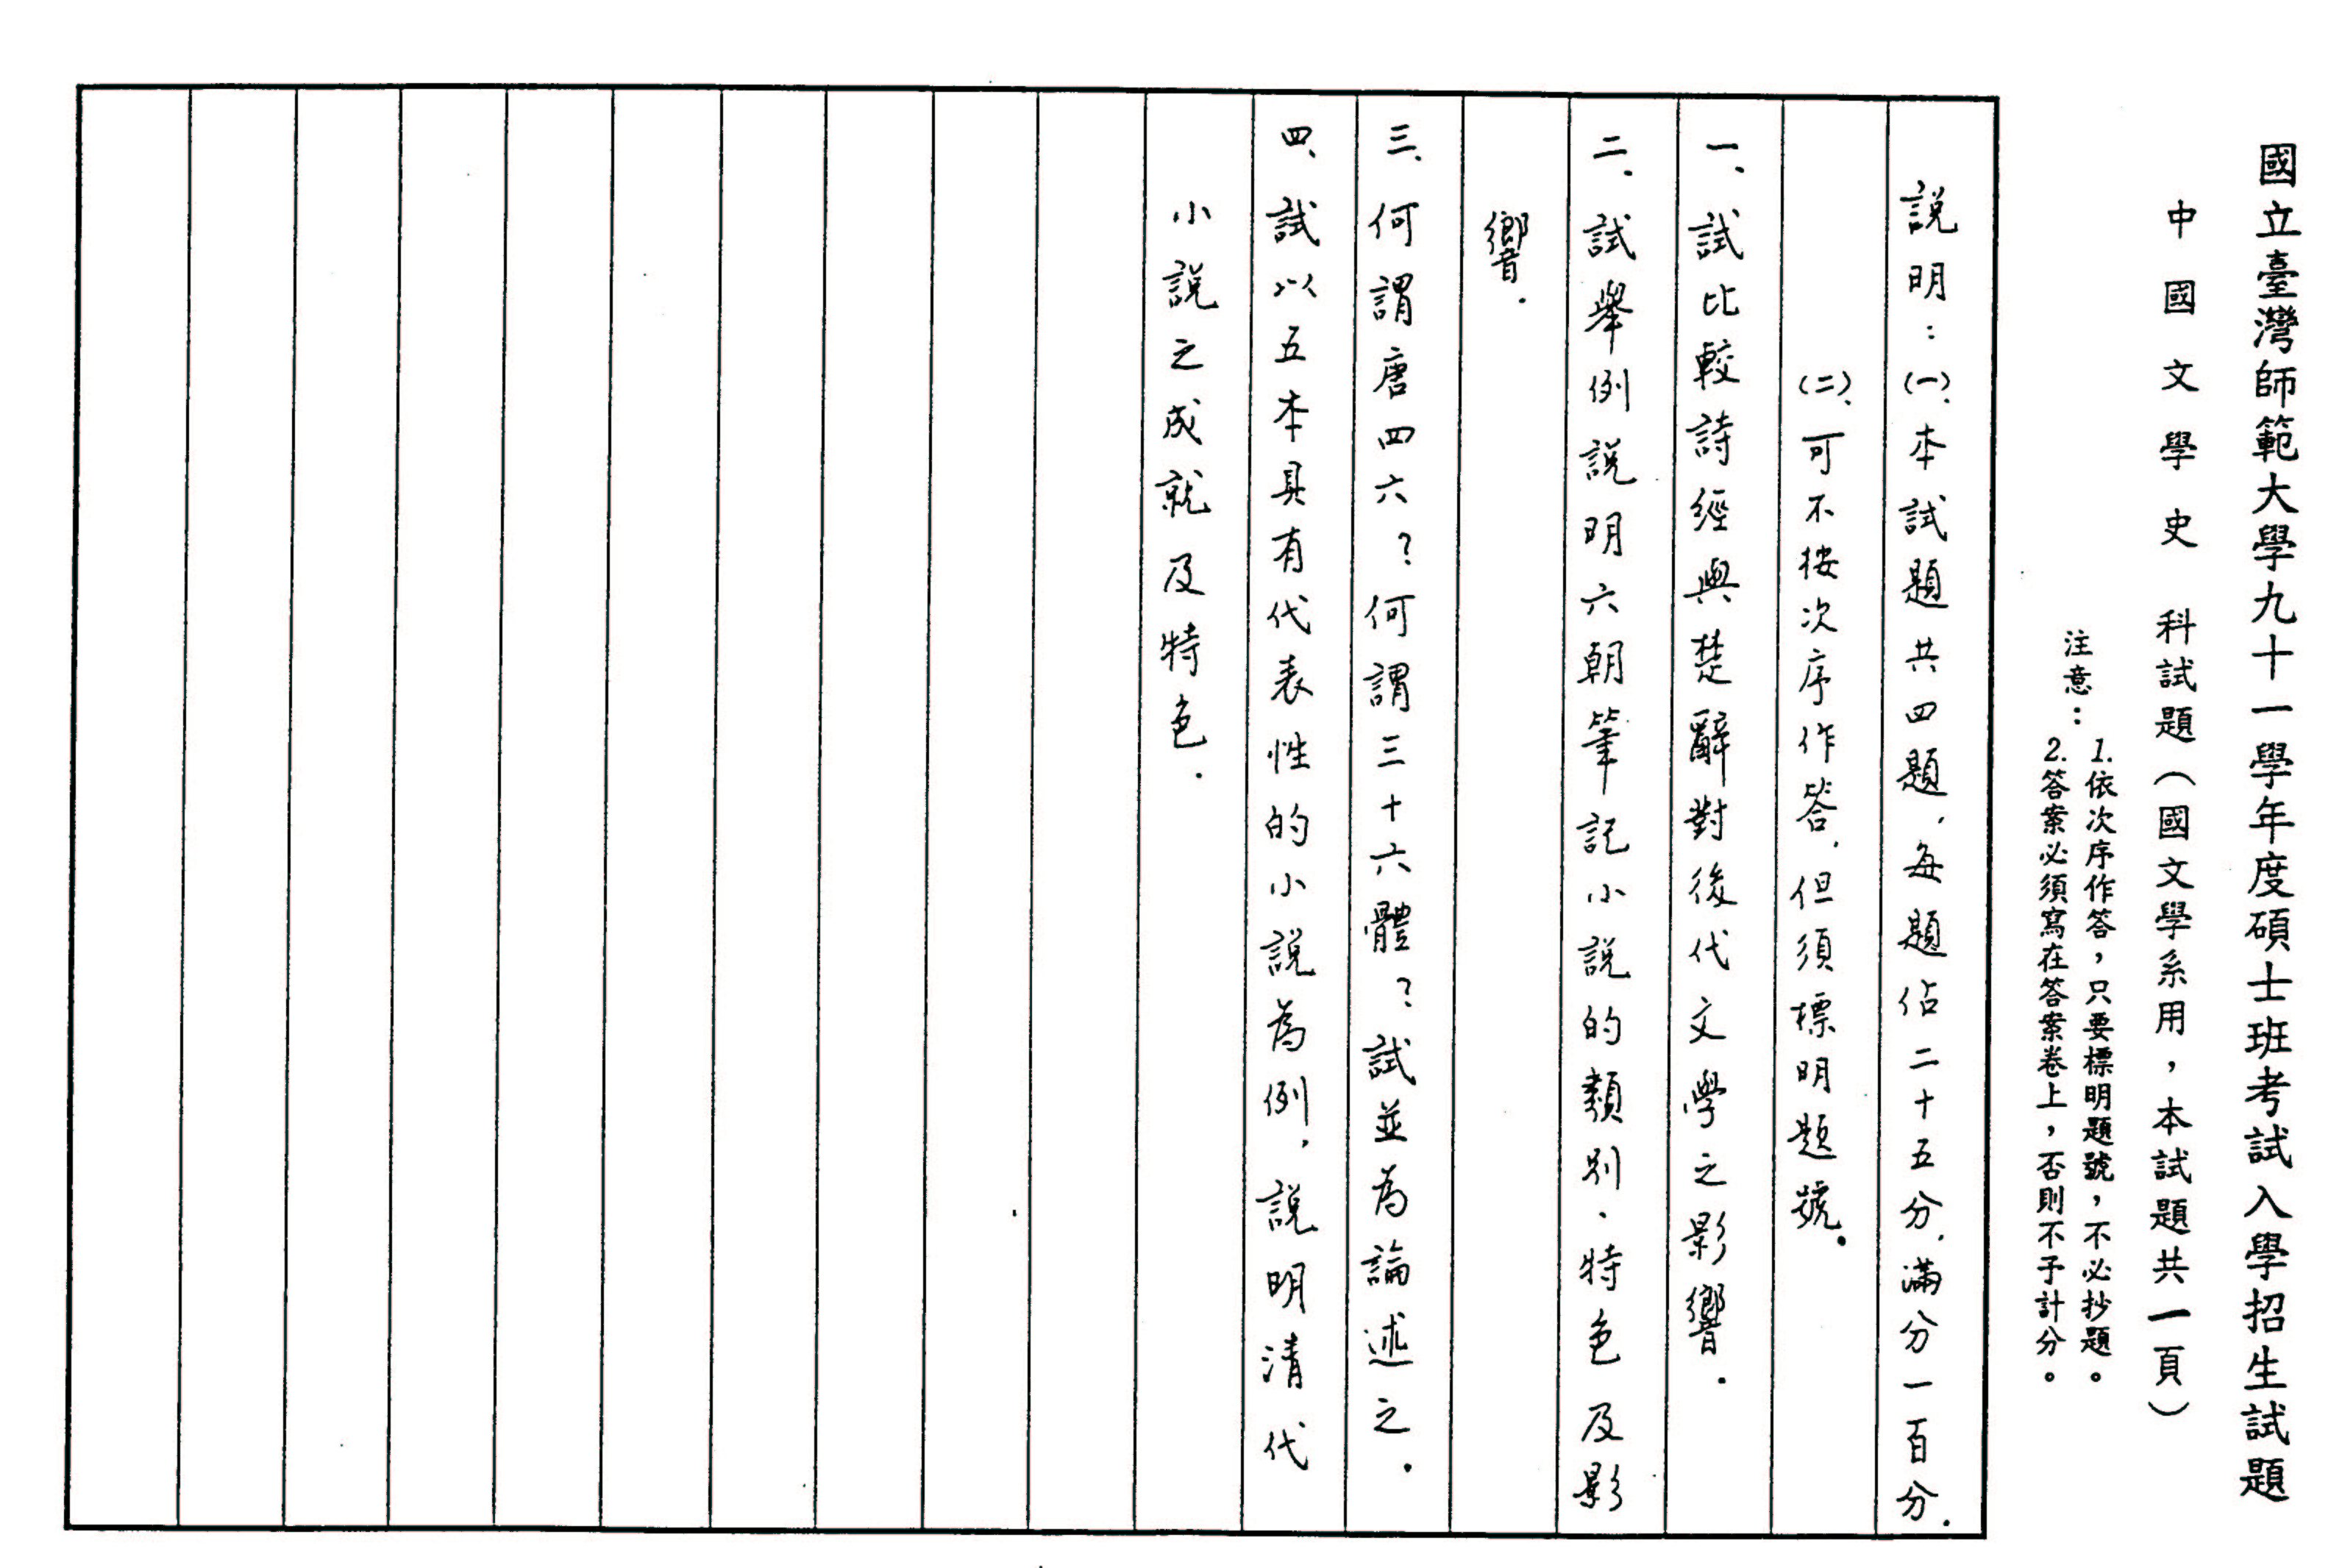 國立臺灣師範大學九十一學年度碩士班考試入學招生試題
中國文學史 科試題（國文學系用，本試題共一頁）
注意：
1.依次序作答，只要標明題號，不必抄題。
2.答案必須寫在答案卷上，否則不予計分。
說明：(一)、本試題共四題，每題佔二十五分，滿分一百分.
(二)、可不按次序作答，但須標明題號。
一、試比較詩經與楚辭對後代文學之影響.
二、試舉例說明六朝筆記小說的類別、特色及影
響.
三、何謂唐四六？何謂三十六體？試並為論述之.
四、試以五本具有代表性的小說為例，說明清代
小說之成就及特色.